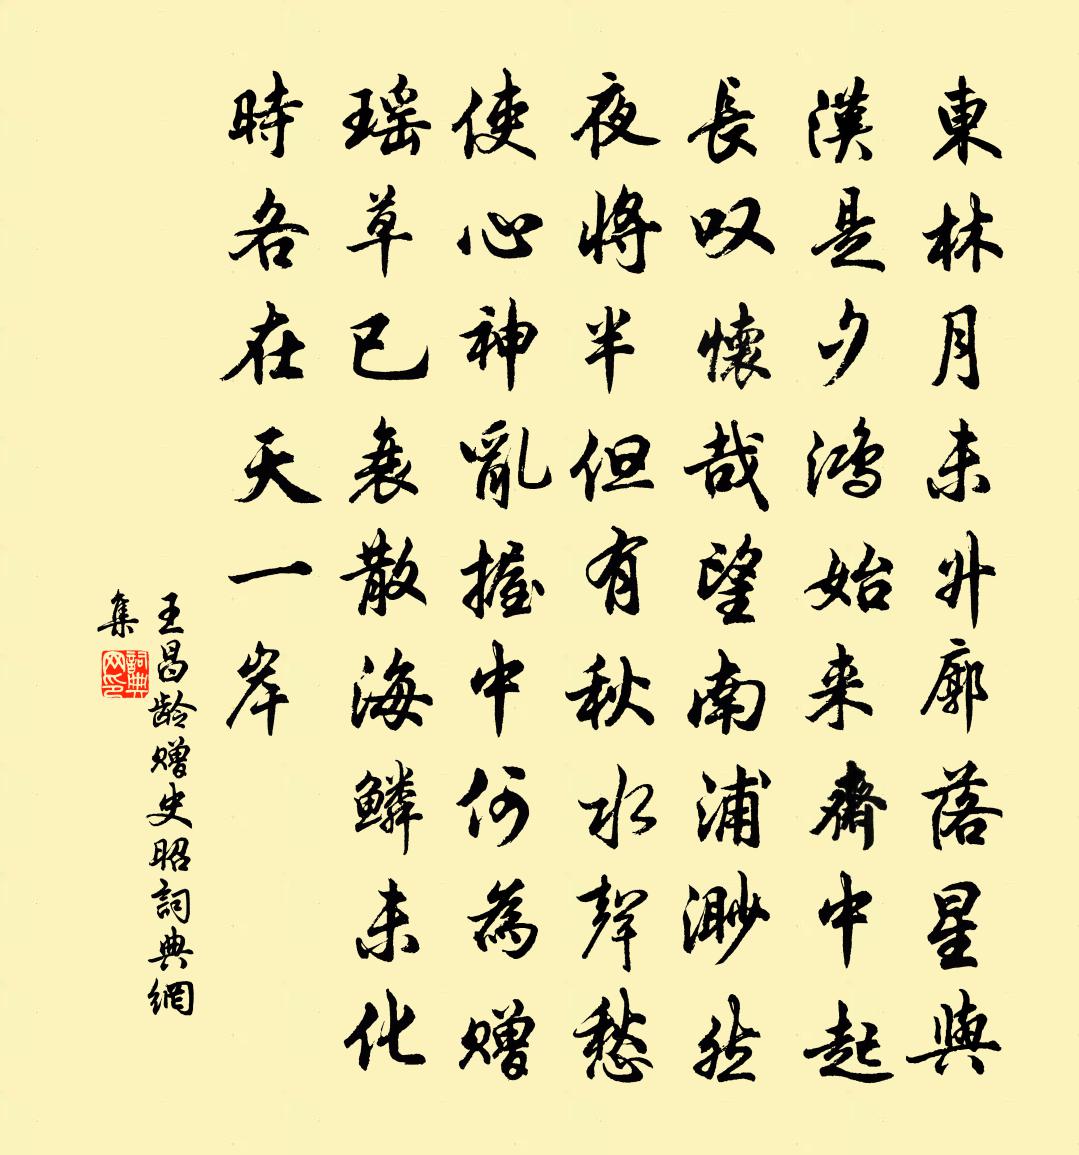 東林月未升廓落星與
漢是夕鴻始来齋中起
長叹懷哉望南浦渺然
夜將半但有秋水聲愁
使心神亂握中何為赠
瑶草已衰散海鳞未化
時各在天一岸
王昌龄赠史昭詞典網
集
詞典网印